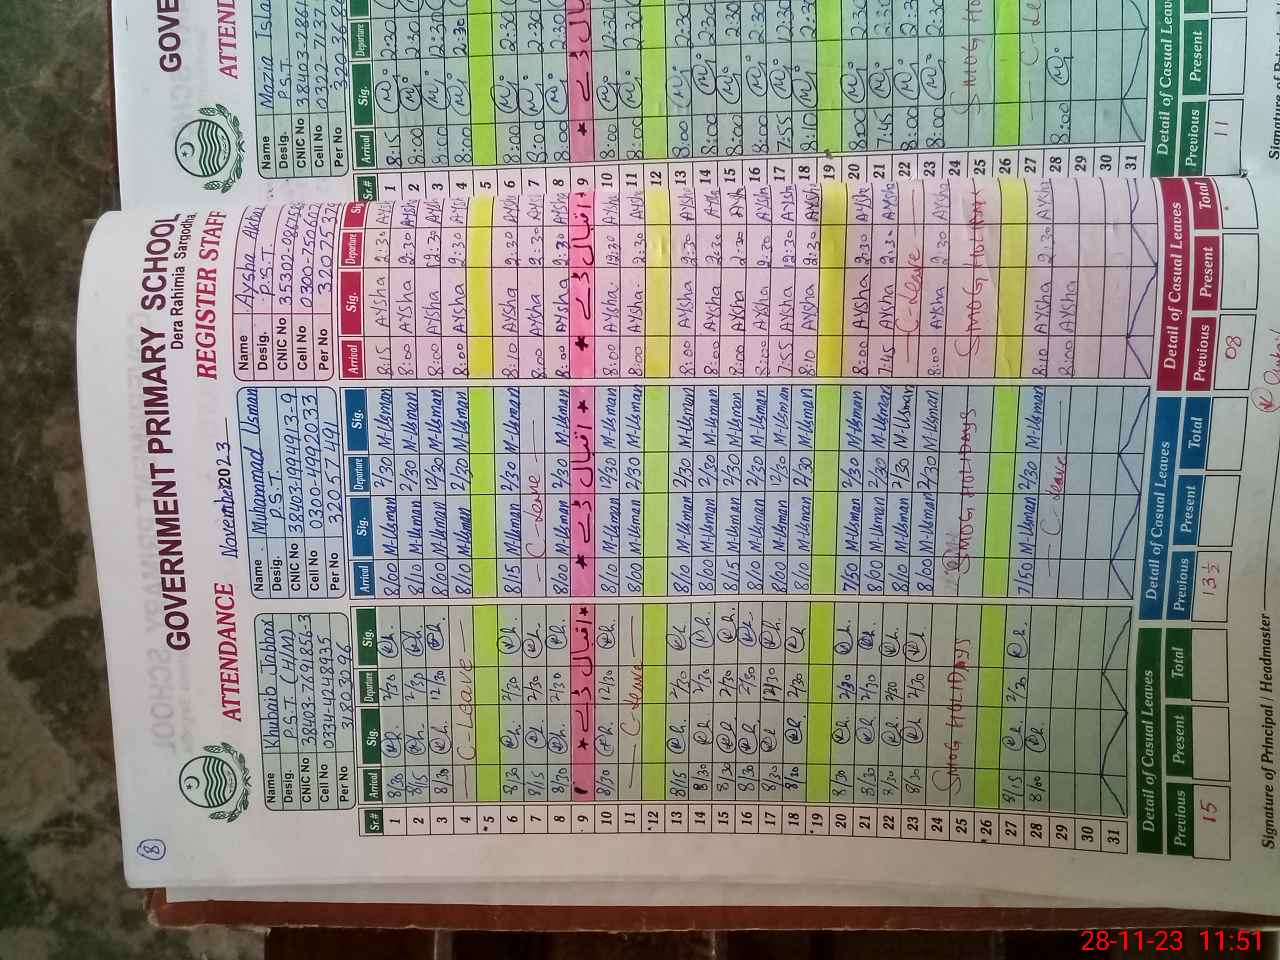 GOVERNMENT PRIMARY SCHOOL
Dera Rahimia Sargodha
ATTENDANCE November 2023 REGISTER STAFF
8
Name Khubaib Jabbar
Desig. P.S.T (H/M)
CNIC No 38403-7691856-3
Cell No 0334-4248935
Per No 31803096
Name Muhammad Usman
Desig. P.S.T.
CNIC No 38403-1994913-9
Cell No 0300-4992033
Per No 32057491
Name Aysha
Desig. P.S.T.
CNIC No
Cell No
Per No
Sr.# Arrival Sig. Departure Sig. Arrival Sig. Departure Sig. Arrival Sig. Departure
1 8/30 2/30 8/00 M-Usman 2/30 M-Usman 8:15 AYsha 2:30
2 8/15 2/30 8/10 M-Usman 2/30 M-Usman 8:00 AYsha 2:30
3 8/30 12/30 8/00 M-Usman 12/30 M-Usman 8:00 AYsha 12:30
4 C-Leave 8/10 M-Usman 2/30 M-Usman 8:00 AYsha 2:30
5
6 8/30 2/30 8/15 M-Usman 2/30 M-Usman 8:10 AYsha 2:30
7 8/15 2/30 C-Leave 8:00 AYsha 2:30
8 8/30 2/30 8/00 M-Usman 2/30 M-Usman 8:00 AYsha 2:30
9 اقبال ڈے اقبال ڈے اقبال ڈے
10 8/30 12/30 8/10 M-Usman 12/30 M-Usman 8:00 AYsha 12:30
11 C-Leave 8/00 M-Usman 2/30 M-Usman 8:00 AYsha 2:30
12
13 8/15 2/30 8/10 M-Usman 2/30 M-Usman 8:00 AYsha 2:30
14 8/30 2/30 8/00 M-Usman 2/30 M-Usman 8:00 AYsha 2:30
15 8/30 2/30 8/15 M-Usman 2/30 M-Usman 8:00 AYsha 2:30
16 8/30 2/30 8/10 M-Usman 2/30 M-Usman 8:00 AYsha 2:30
17 8/30 12/30 8/00 M-Usman 12/30 M-Usman 7:55 AYsha 12:30
18 8/30 2/30 8/10 M-Usman 2/30 M-Usman 8:10 AYsha 2:30
19
20 8/30 2/30 7/50 M-Usman 2/30 M-Usman 8:00 AYsha 2:30
21 8/30 2/30 8/00 M-Usman 2/30 M-Usman 7:45 AYsha 2:30
22 8/30 2/30 8/10 M-Usman 2/30 M-Usman C-Leave
23 8/30 2/30 8/00 M-Usman 2/30 M-Usman 8:00 AYsha 2:30
24
25 SMOG HOLIDAYS SMOG HOLIDAYS SMOG HOLIDAY
26
27 8/15 2/30 7/50 M-Usman 2/30 M-Usman 8:10 AYsha 2:30
28 8/00 C-Leave 8:00 AYsha
29
30
31
Detail of Casual Leaves Detail of Casual Leaves Detail of Casual Leaves
Previous Present Total Previous Present Total Previous Present Total
15 13½ 08
Signature of Principal / Headmaster
GOVE
ATTEND
Name Mazia
Desig. P.S.T.
CNIC No
Cell No
Per No
Sr.# Arrival Sig. Departure
1 8:15 2:30
2 8:00 2:30
3 8:00 12:30
4 8:00 2:30
5
6 8:00 2:30
7 8:00 2:30
8 8:00 2:30
9
10 8:00 12:30
11 8:00 2:30
12
13 8:00 2:30
14 8:00 2:30
15 8:00 2:30
16 8:00 2:30
17 7:55 12:30
18 8:10 2:30
19
20 8:00 2:30
21 7:45 2:30
22 8:00 2:30
23 8:00 2:30
24
25 SMOG
26
27
28 8:00
29
30
31
Detail of Casual Leaves
Previous Present
11
28-11-23 11:51